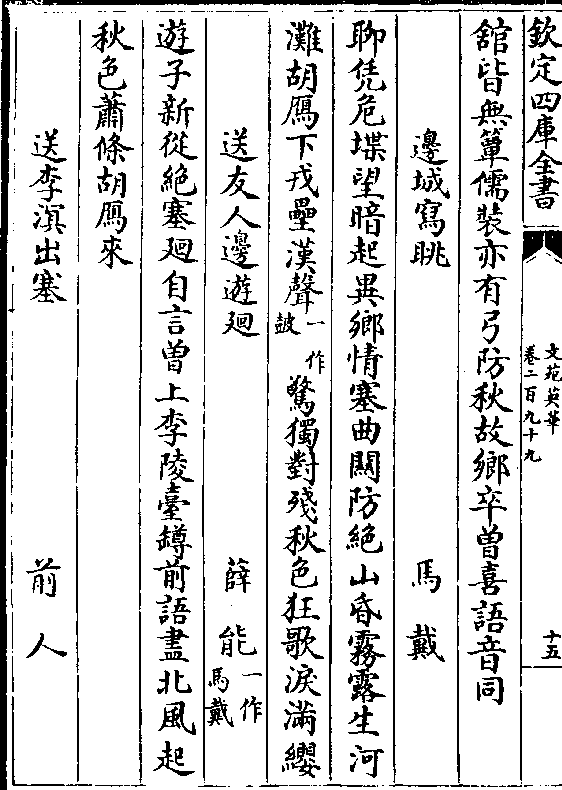 欽定四庫全書
文苑英華
卷二百九十九
十五
舘皆無簟儒裝亦有弓防秋故鄉卒曾喜語音同
邊城寫眺 馬戴
聊凭危堞望暗起異鄉情塞曲關防絶山昏霧露生河
灘胡鴈下戎壘漢聲一作鼓驚獨對殘秋色狂歌淚滿纓
送友人邊遊廻 薛能一作馬戴
遊子新從絶塞廻自言曽上李陵臺罇前語盡北風起
秋色蕭條胡鴈來
送李滇出塞 前人